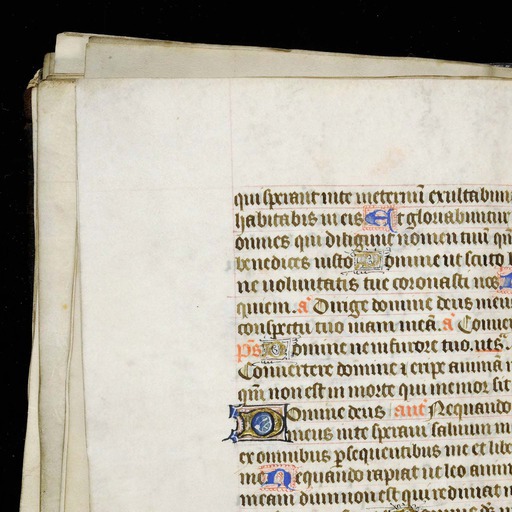 qui sperant in te in eternũ exultabunt
habitabis in eis Et gloriabuntur
omnes qui diligunt nomen tuũ qm̃
benedices iusto Domine ut scuto b
ne uoluntatis tue coronasti nos
quiem. añ Dirige domine deus meus
conspectu tuo uiam meã. añ Conuer
p̃s Domine ne in furore tuo. ut s̃.
Conuertere domine ⁊ eripe animã m
qm̃ non est in morte qui memor sit
Domine deus añt Nequando
meus in te speraui saluum m
ex omnibus ꝑsequentibus me et libe
me Nequando rapiat ut leo anim
meam dum non est qui redimat n